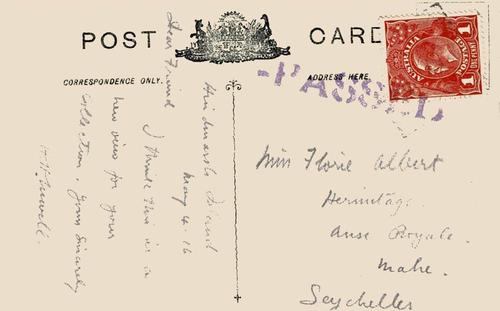 POST CARD
CORRESPONDENCE ONLY.
ADDRESS HERE.
AUSTRALIA
1 1
POSTAGE
ONE PENNY
PASSED
Hindmarsh Island
May 4. 16
Dear Friend
I think this is a
new view for your
collection. Yours Sincerely
Miss Florie Albert
Hermitage.
Anse Royale.
Mahe.
Seychelles